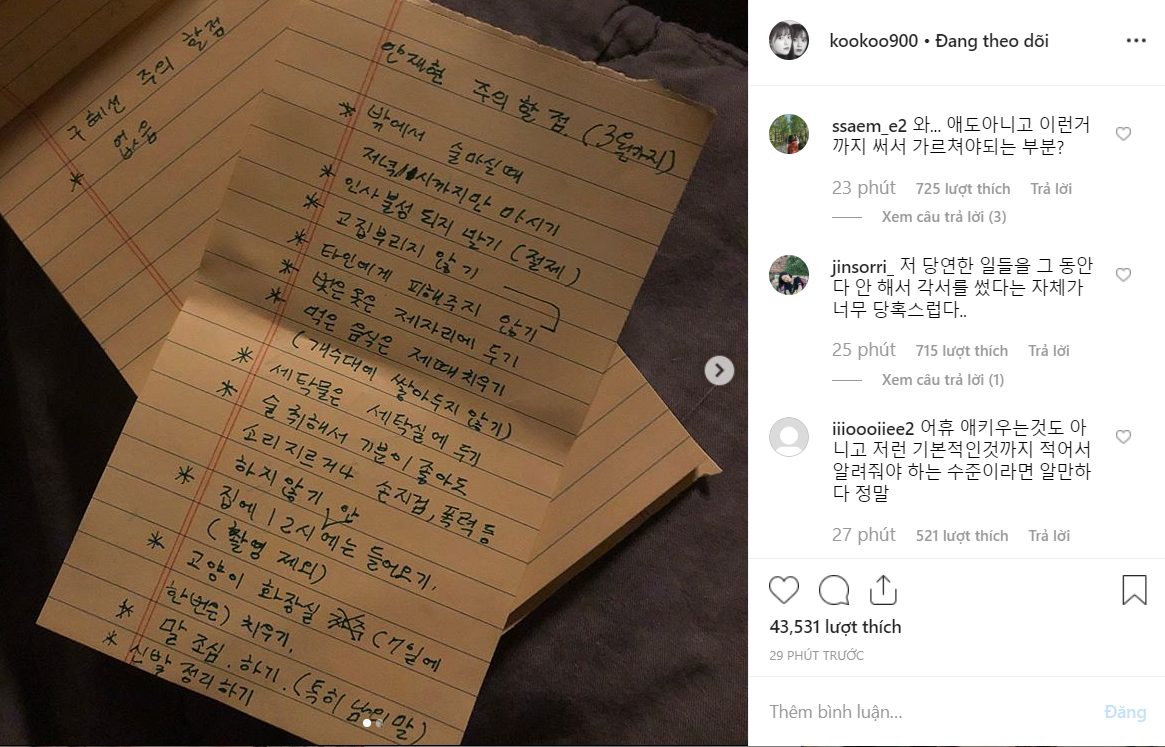 구혜선 주의 할 점
* 없음
안재현 주의 할 점 (3월까지)
* 밖에서 술마실때
저녁 11시까지만 마시기
* 인사불성 되지 말기 (절제)
* 고집부리지 않기
* 타인에게 피해주지 않기
* 벗은 옷은 제자리에 두기
* 먹은 음식은 제때 치우기
(개수대에 쌓아두지 않기)
* 세탁물은 세탁실에 두기
* 술 취해서 기분이 좋아도
소리지르거나 손지검, 폭력 등
하지않기
* 집에 12시 안에는 들어오기.
(촬영 제외)
* 고양이 화장실 (7일에
한번은) 치우기.
* 말 조심. 하기. (특히 남의 말)
* 신발 정리하기
kookoo900 • Đang theo dõi
ssaem_e2 와... 애도아니고 이런거
까지 써서 가르쳐야되는 부분?
23 phút 725 lượt thích Trả lời
Xem câu trả lời (3)
jinsorri_ 저 당연한 일들을 그 동안
다 안 해서 각서를 썼다는 자체가
너무 당혹스럽다..
25 phút 715 lượt thích Trả lời
Xem câu trả lời (1)
iiioooiiee2 어휴 애키우는것도 아
니고 저런 기본적인것까지 적어서
알려줘야 하는 수준이라면 알만하
다 정말
27 phút 521 lượt thích Trả lời
43,531 lượt thích
29 PHÚT TRƯỚC
Thêm bình luận... Đăng